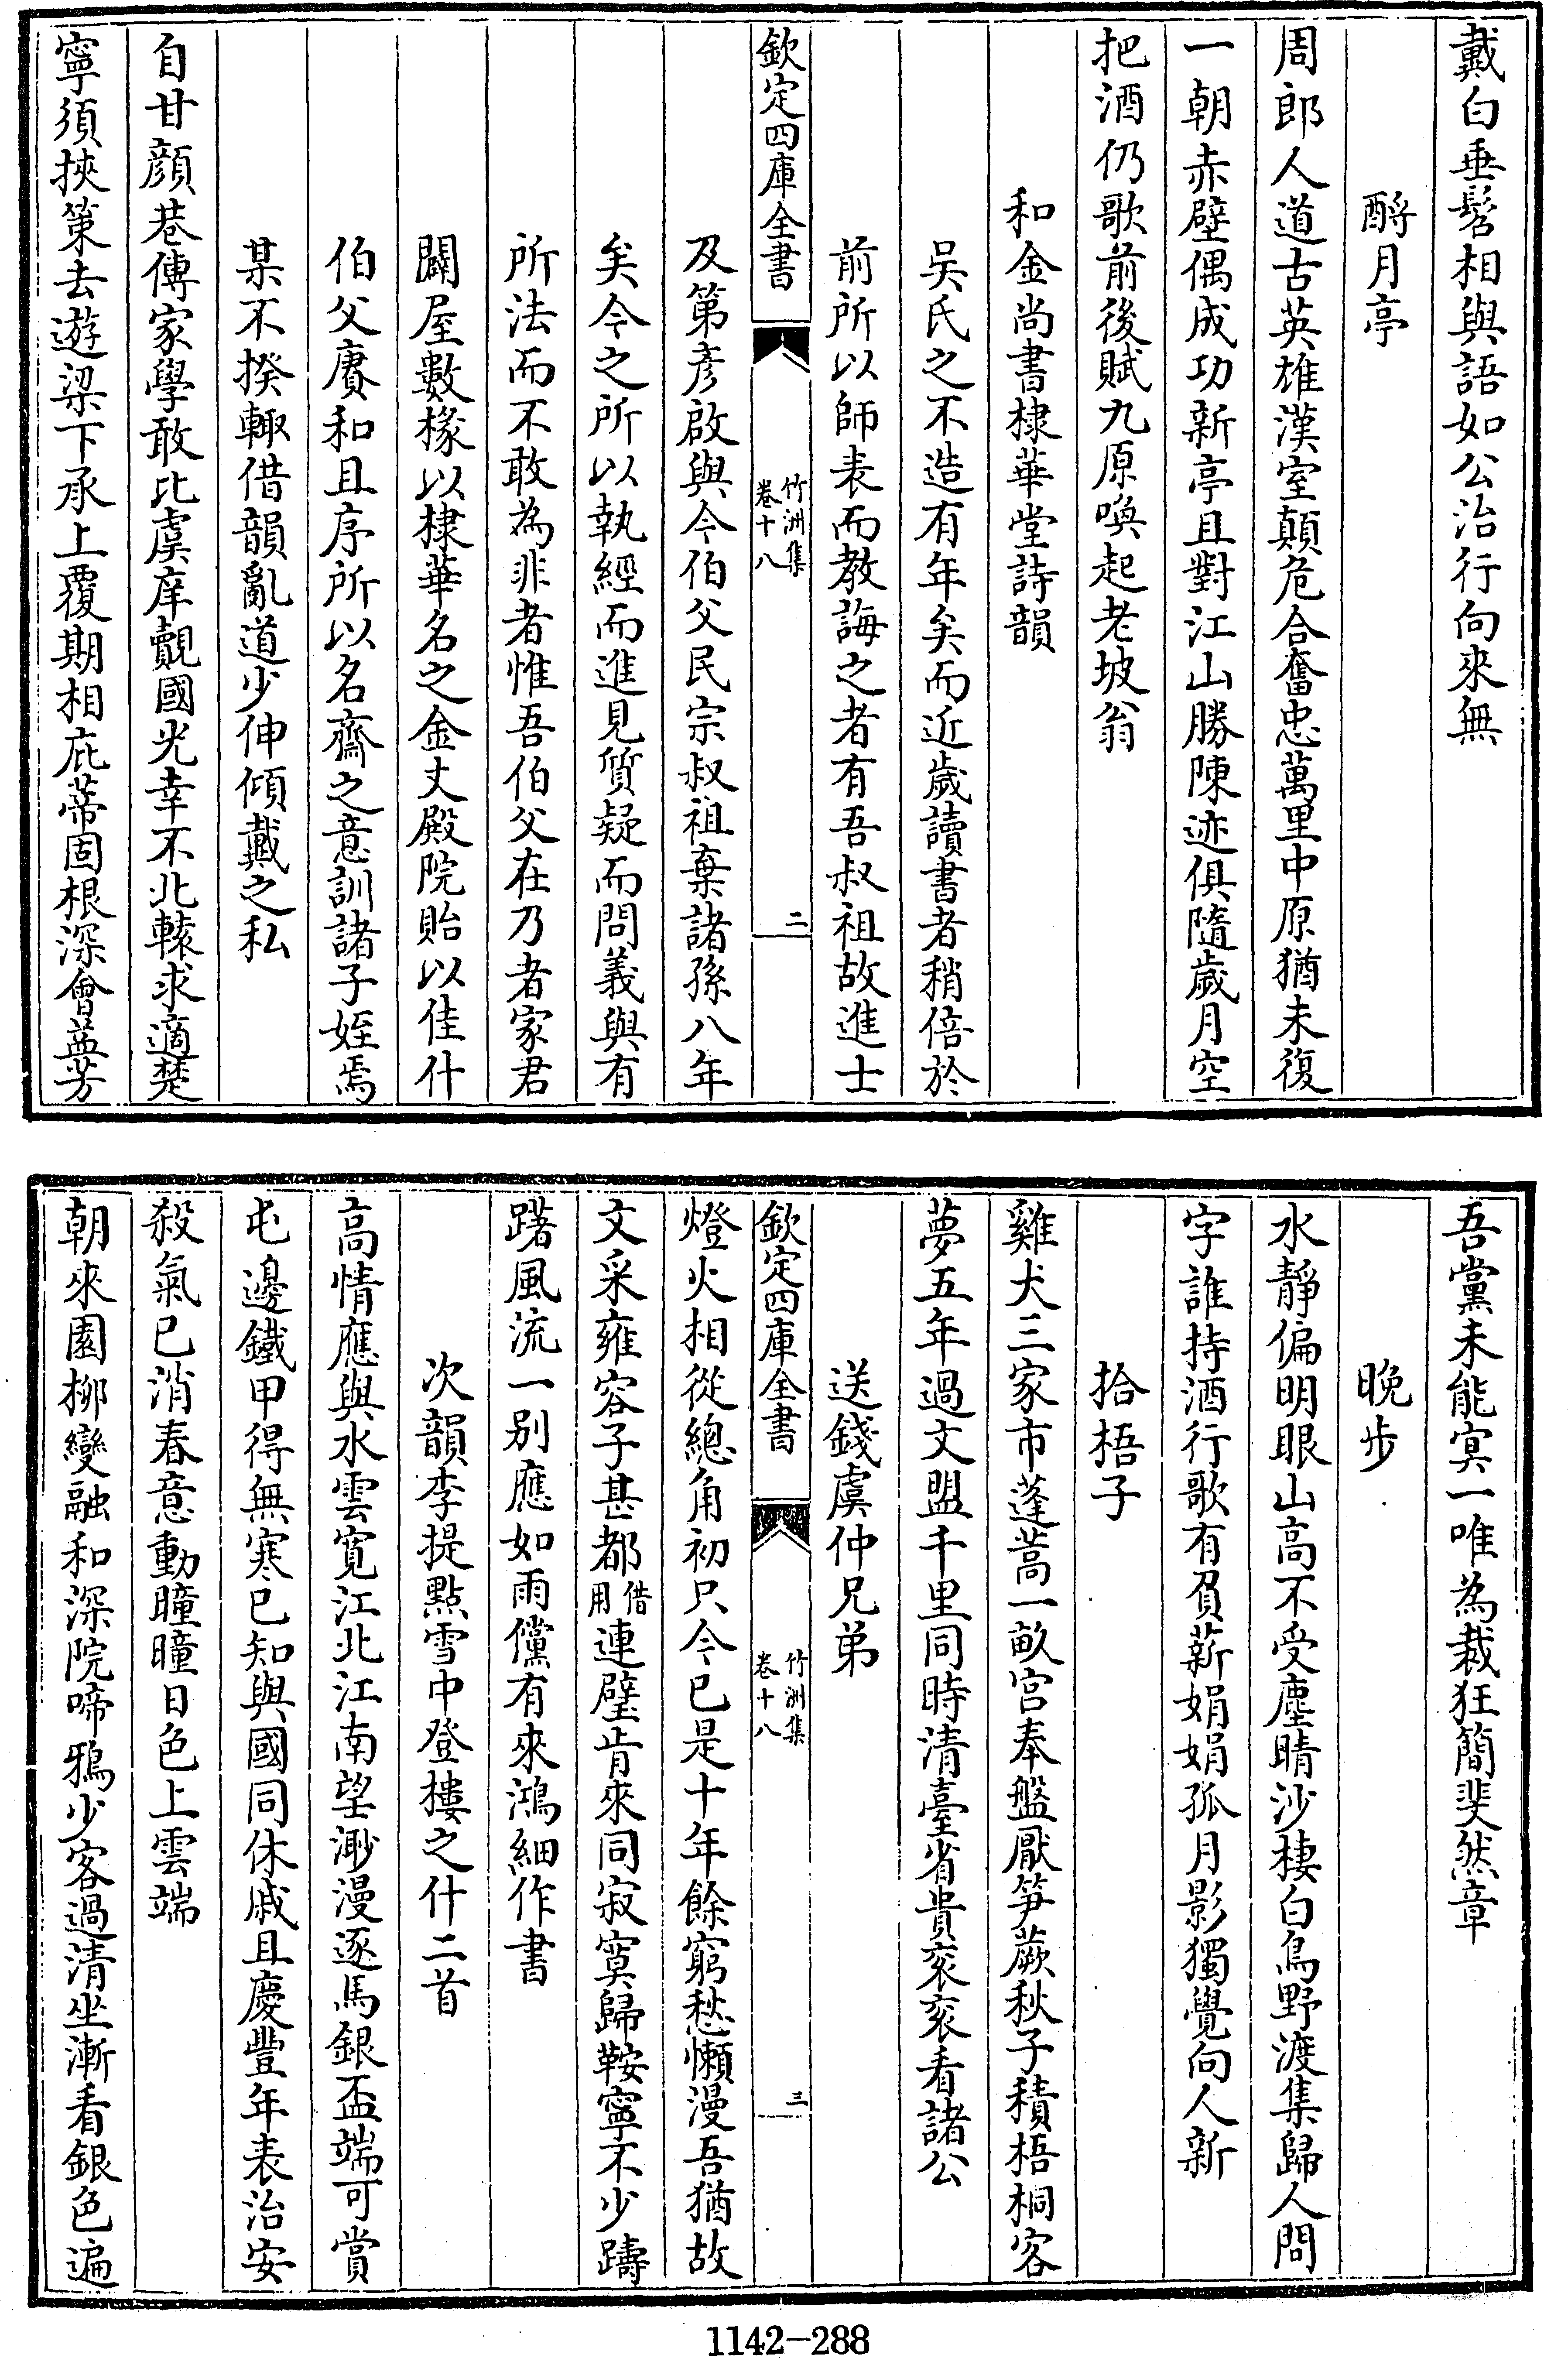 戴白垂髫相與語如公治行向來無
酹月亭
周郎人道古英雄漢室顛危合奮忠萬里中原猶未復
一朝赤壁偶成功新亭且對江山勝陳迹俱隨歲月空
把酒仍歌前後賦九原喚起老坡翁
和金尚書棣華堂詩韻
吳氏之不造有年矣而近歲讀書者稍倍於
前所以師表而教誨之者有吾叔祖故進士
欽定四庫全書
竹洲集
卷十八
二
及第彦啟與今伯父民宗叔祖棄諸孫八年
矣今之所以執經而進見質疑而問義與有
所法而不敢為非者惟吾伯父在乃者家君
闢屋數椽以棣華名之金丈殿院貽以佳什
伯父賡和且序所以名齋之意訓諸子姪焉
某不揆輙借韻亂道少伸傾戴之私
自甘顔巷傳家學敢比虞庠覿國光幸不北轅求適楚
寧須挾策去遊梁下承上覆期相庇蒂固根深會益芳
吾黨未能㝠一唯為裁狂簡斐然章
晚步
水靜偏明眼山高不受塵晴沙棲白鳥野渡集歸人問
字誰持酒行歌有負薪娟娟孤月影獨覺向人新
拾梧子
雞犬三家市蓬蒿一畝宫奉盤厭笋蕨秋子積梧桐客
夢五年過文盟千里同時清臺省貴衮衮看諸公
送錢虞仲兄弟
欽定四庫全書
竹洲集
卷十八
三
燈火相從總角初只今已是十年餘窮愁懶漫吾猶故
文采雍容子甚都借用連璧肯來同寂寞歸鞍寧不少躊
躇風流一别應如雨儻有來鴻細作書
次韻李提點雪中登樓之什二首
高情應與水雲寛江北江南望渺漫逐馬銀盃端可賞
屯邊鐵甲得無寒已知與國同休戚且慶豐年表治安
殺氣已消春意動曈曈日色上雲端
朝來園柳變融和深院啼鴉少客過清坐漸看銀色遍
1142-288